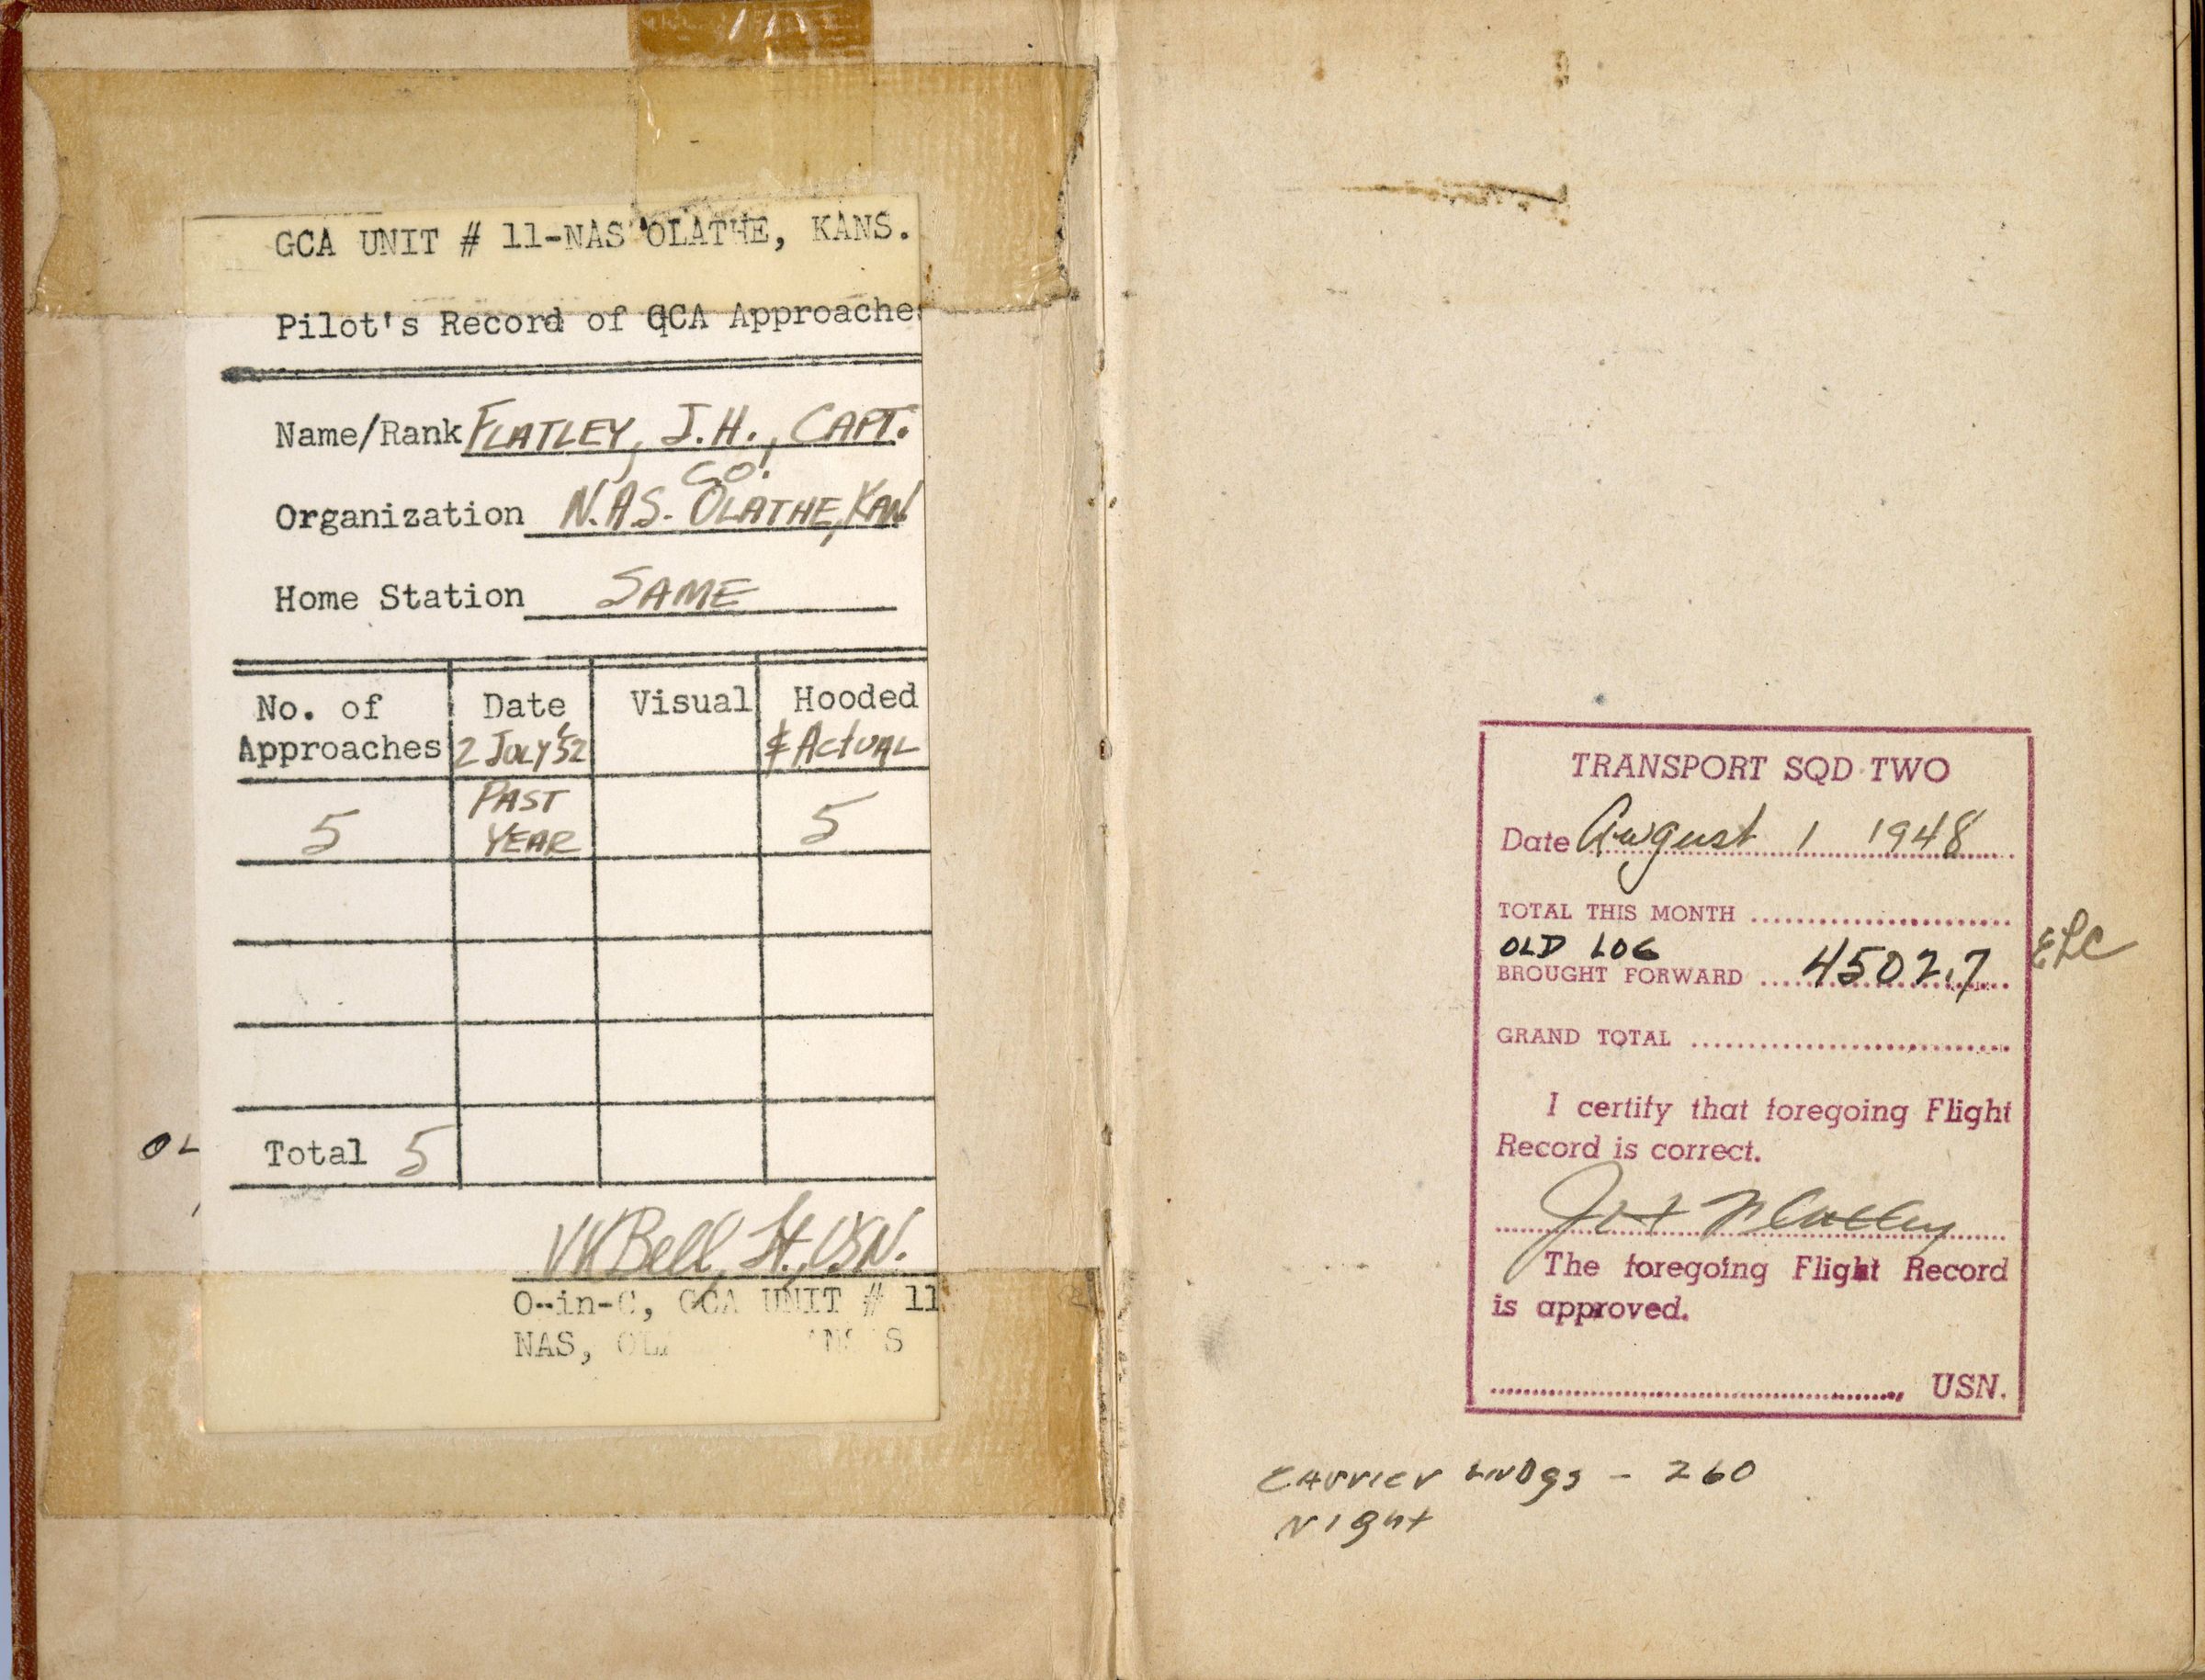 GCA UNIT # 11-NAS OLATHE, KANS.
Pilot's Record of GCA Approaches
Name/Rank FLATLEY, J.H., CAPT.
CO.
Organization N.A.S. OLATHE, KAN
Home Station SAME
No. of Date Visual Hooded
Approaches 2 JULY '52 & ACTUAL
PAST
5 YEAR 5
Total 5
VK Bell, Lt., USN.
O-in-C, GCA UNIT # 11
NAS,
OL
TRANSPORT SQD TWO
Date August 1 1948
TOTAL THIS MONTH
OLD LOG
BROUGHT FORWARD 4502.7
GRAND TOTAL
I certify that foregoing Flight
Record is correct.
JH Flatley
The foregoing Flight Record
is approved.
USN.
Carrier LNDgs - 260
Night